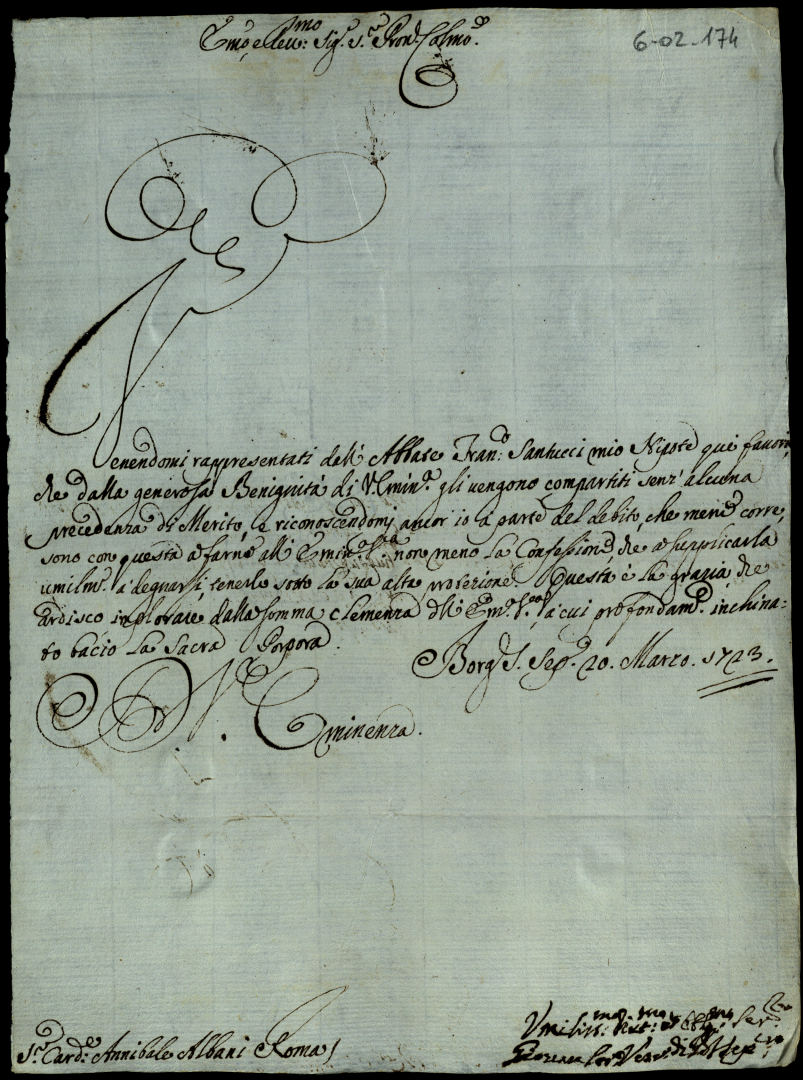 Emo, e Reu:mo Sig.r S.r Pron. Colmo.
6-02-174
Venendomi rappresentati dall' Abbate Fran.o Santucci mio Nipote quei favori,
che dalla generosa Benignità di V. Emin.a gli vengono compartiti senz' alcuna
precedenza di Merito, e riconoscendomi ancor io a parte del debito, che mene corre,
sono con questa a farne all' Emin.a V.ra non meno la Confessione, che a supplicarla
umilm.e a degnarsi, tenerlo sotto la sua alta protezione. Questa è la grazia, che
ardisco implorare dalla somma clemenza dell' Em.a V.ra, a cui profondam.e inchina=
to bacio la Sacra Porpora.
Borgo S. Sep.o 20. Marzo. 1723.
Di V.ra
Eminenza.
S.r Card.e Annibale Albani Roma
Umiliss.mo Ser.